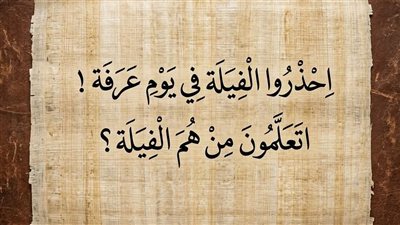 اِحْذْرُوا الْفِيَلَة فِي يَوْمِ عَرَفَة !
اتَعَلَّمُونَ مِنْ هُمَ الْفِيَلَة ؟